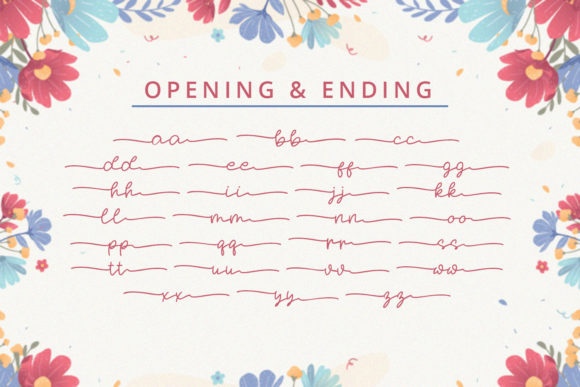 OPENING & ENDING
aa bb cc
dd ee ff gg
hh ii jj kk
ll mm nn oo
pp qq rr ss
tt uu vv ww
xx yy zz